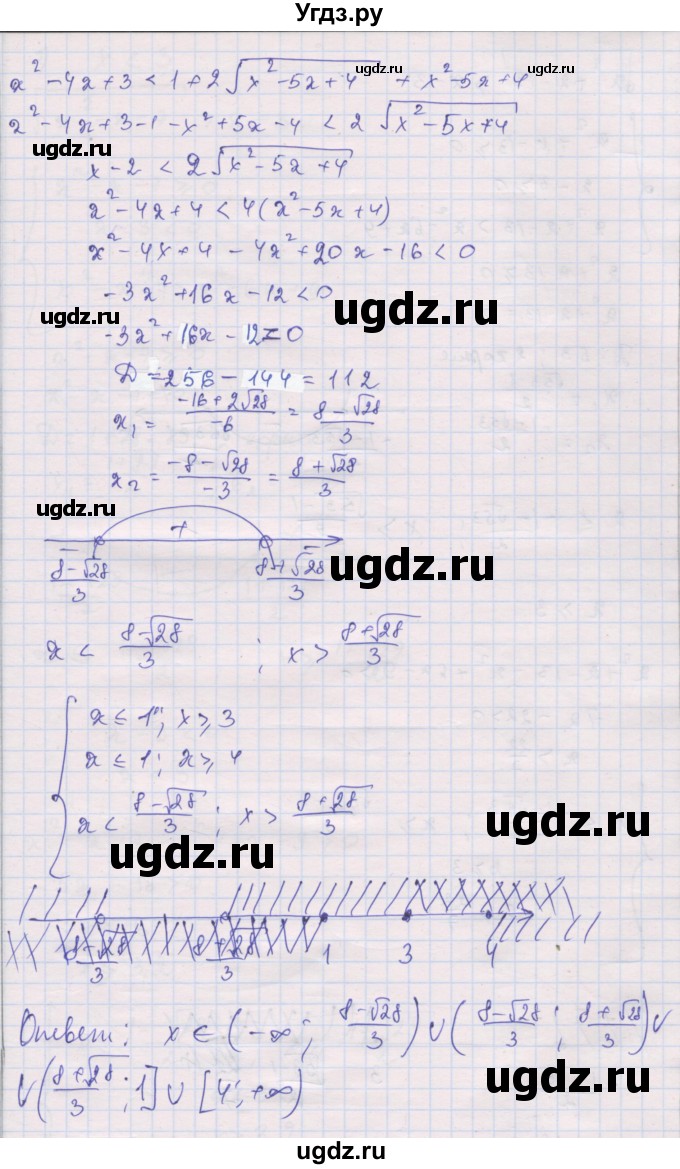 Угдз.ру
x² - 4x + 3 < 1 + 2√(x² - 5x + 4) + x² - 5x + 4
ugdz.ru ugdz.ru
x² - 4x + 3 - 1 - x² + 5x - 4 < 2 √(x² - 5x + 4)
ugdz.ru
x - 2 < 2√(x² - 5x + 4)
x² - 4x + 4 < 4(x² - 5x + 4)
x² - 4x + 4 - 4x² + 20x - 16 < 0
-3x² + 16x - 12 < 0
ugdz.ru
ugdz.ru
-3x² + 16x - 12 = 0
D = 256 - 144 = 112
x₁ = (-16 + 2√28)/(-6) = (8 - √28)/3
x₂ = (-8 - √28)/(-3) = (8 + √28)/3
ugdz.ru
- + -
(8 - √28)/3 (8 + √28)/3
ugdz.ru
x < (8 - √28)/3 ; x > (8 + √28)/3
ugdz.ru
x ≤ 1; x ≥ 3
x ≤ 1; x ≥ 4
x < (8 - √28)/3 ; x > (8 + √28)/3
ugdz.ru
ugdz.ru
(8 - √28)/3 (8 + √28)/3 1 3 4
Ответ: x ∈ (-∞; (8 - √28)/3) ∪ ((8 - √28)/3 ; (8 + √28)/3) ∪
∪ ((8 + √28)/3 ; 1] ∪ [4; +∞)
ugdz.ru
ugdz.ru
ugdz.ru